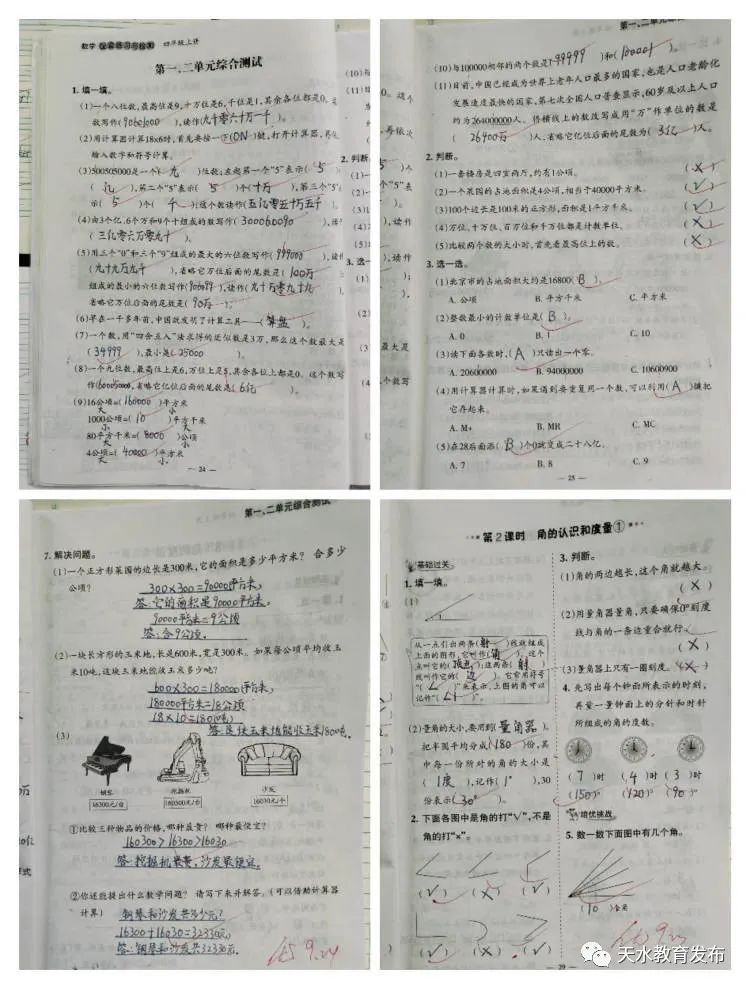 数学 四年级上册
第一、二单元综合测试
1. 填一填。
(1)一个八位数，最高位是9，十万位是6，千位是1，其余各位都是0，
数写作(90601000)，读作(九千零六十万一千)。
(2)用计算器计算18×6时，首先要按一下(ON)键，打开计算器，
输入数字和符号计算。
(3)500505000是一个(九)位数；左起第一个"5"表示(5)
(亿)，第二个"5"表示(5)个(十万)，第三个"5"
示(5)个(千)；这个数读作(五亿零五十万五千)
(4)由3个亿、6个万和9个十组成的数写作(300060090
(三亿零六万零九十)。
(5)用三个"0"和三个"9"组成的最大的六位数写作(999000)，读作
(九十九万九千)，省略它万位后面的尾数是(100万)
组成的最小的六位数写作(900099)，读作(九十万零九十九
省略它万位后面的尾数是(90万)。
(6)早在一千多年前，中国就发明了计算工具——(算盘)。
(7)一个数，用"四舍五入"法求得的近似数是3万，那么这个数最大是
(34999)，最小是(25000)。
(8)一个九位数，最高位上是6，万位上是5，其余各位上都是0。这个数写
作(600050000)，省略它亿位后面的尾数是(6亿)。
(9)16公顷=(160000)平方米
1000公顷=(10)平方千米
80平方千米=(8000)公顷
4公顷=(40000)平方米
— 24 —
第一、二单元综合测
(10)与100000相邻的两个数是(99999)和(100001)。
(11)目前，中国已经成为世界上老年人口最多的国家，也是人口老龄化
发展速度最快的国家。第七次全国人口普查显示，60岁及以上人口
约为264000000人。将横线上的数改写成用"万"作单位的数是
(26400万)人，省略它亿位后面的尾数为(3亿)人。
2. 判断。
(1)一套楼房是四室两厅，约有1公顷。 (×)
(2)一个果园的占地面积是4公顷，相当于40000平方米。 (√)
(3)100个边长是100米的正方形，面积是1平方千米。 (√)
(4)万位、十万位、百万位和千万位都是计数单位。 (×)
(5)比较两个数的大小时，首先看最高位上的数。 (×)
3. 选一选。
(1)北京市的占地面积大约是16800(B)。
A. 公顷 B. 平方千米 C. 平方米
(2)整数最小的计数单位是(B)。
A. 0 B. 1 C. 10
(3)读下面各数时，(A)只读出一个零。
A. 20600000 B. 94000000 C. 10600900
(4)用计算器计算时，如果遇到要重复用一个数，可以利用(A)键把
它存起来。
A. M+ B. MR C. MC
(5)在28后面添(B)个0就变成二十八亿。
A. 7 B. 8 C. 9
— 25 —
第一、二单元综合测试
7. 解决问题。
(1)一个正方形菜园的边长是300米，它的面积是多少平方米？合多少
公顷？
300×300=90000平方米，
答：它的面积是90000平方米。
90000平方米=9公顷
答：合9公顷。
(2)一块长方形的玉米地，长是600米，宽是300米。如果每公顷平均收玉
米10吨，这块玉米地能收玉米多少吨？
600×300=180000平方米，
180000平方米=18公顷
18×10=180吨
(3)
钢琴 挖掘机 沙发
16300元/台 160300元/台 16030元/个
①比较三种物品的价格，哪种最贵？哪种最便宜？
160300>16300>16030
答：挖掘机最贵，沙发最便宜。
②你还能提出什么数学问题？请写下来并解答。(可以借助计算器
计算)
钢琴和沙发共多少元？
16300+16030=32330元，
答：钢琴和沙发共32330元。
9.24
第2课时 角的认识和度量①
基础过关
1. 填一填。
(1)
从一点引出两条(射)线所组成
上面的图形，它叫作(角)。这个
点叫它的(顶点)；这两条(射)
线叫作它的(边)。它常用符号
"(∠)"来表示，上图的角可以
记作"(∠1)"。
(2)量角的大小，要用到(量角器)。
把半圆平均分成(180)份，其
中每一份所对的角的大小是
(1度)，记作(1°)，30
份表示(30°)。
2. 下面各图中是角的打"√"，不是
角的打"×"。
(√) (×) (√)
(√) (×) (√)
3. 判断。
(1)角的两边越长，这个角就越大。
(×)
(2)用量角器量角，只要确保0°刻度
线与角的一条边重合就行。
(×)
(3)量角器上只有一圈刻度。(×)
4. 先写出每个钟面所表示的时刻，
再量一量钟面上的分针和时针
所组成的角的度数。
(7)时 (4)时 (3)时
(150°) (120°) (90°)
培优挑战
5. 数一数下面图中有几个角。
(10)个角
29
天水教育发布